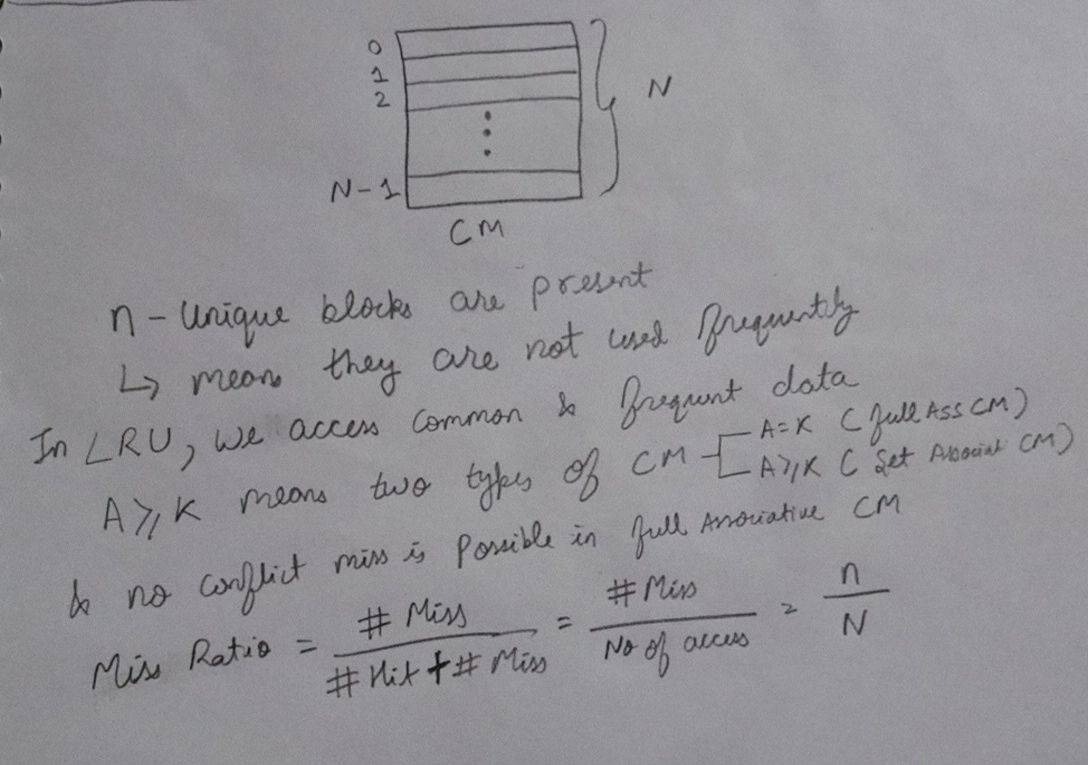 0
1
2
N
N-1
CM
n - Unique blocks are present
↳ means they are not used frequently
In LRU, we access common & frequent data
A ⩾ K means two types of CM
A = K (full Ass CM)
A ⩾ K ( Set Associat CM)
& no conflict miss is possible in full Associative CM
Miss Ratio = # Miss / # Hit + # Miss = # Miss / No of access = n / N